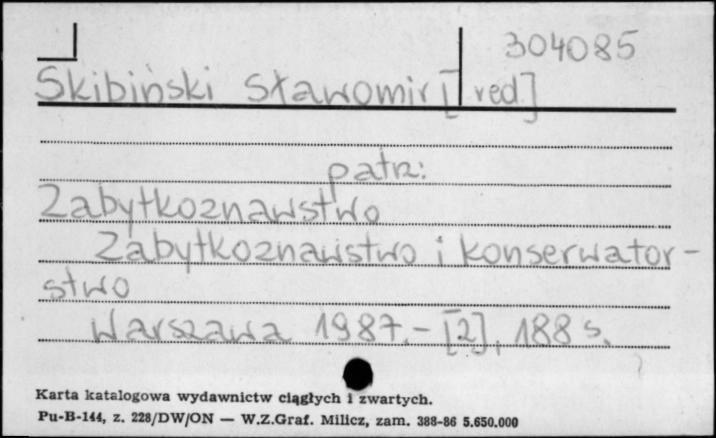 304085
Skibiński Sławomir [red.]
patrz:
Zabytkoznawstwo
Zabytkoznawstwo i konserwator-
stwo
Warszawa 1987.- [2], 188 s.
Karta katalogowa wydawnictw ciągłych i zwartych.
Pu-B-144, z. 228/DW/ON — W.Z.Graf. Milicz, zam. 388-86 5.650.000